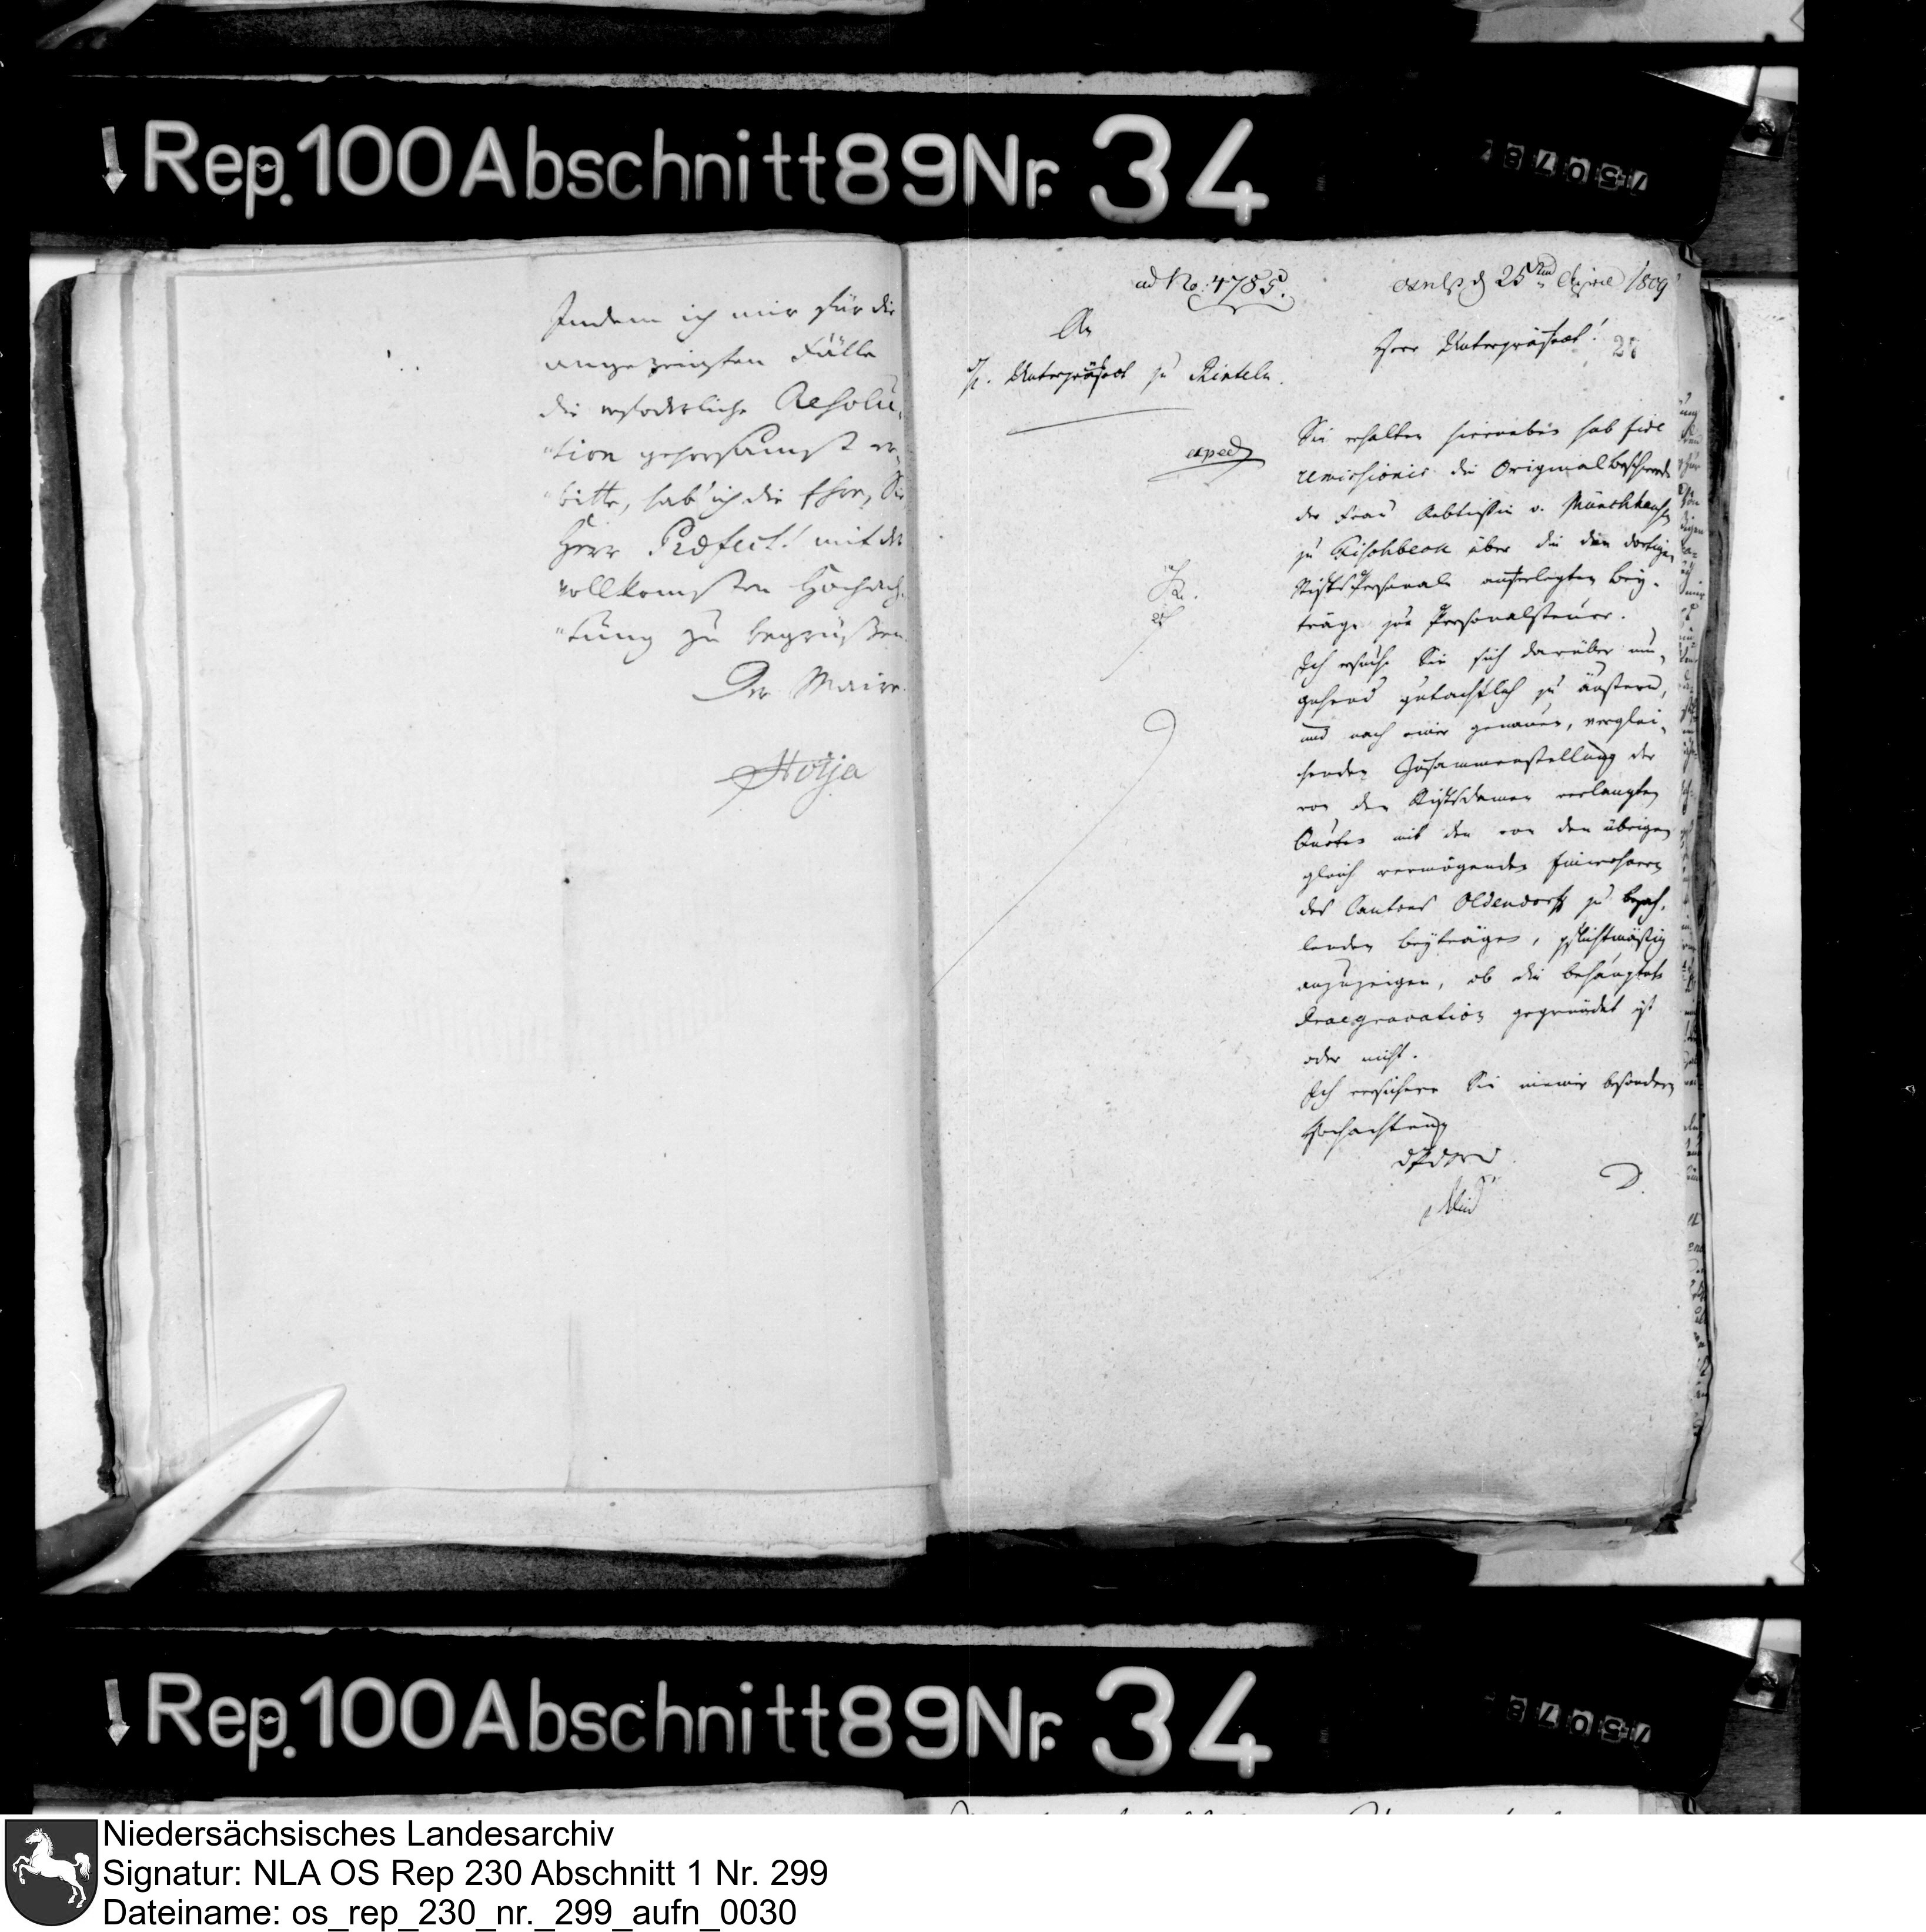 Rep. 100 Abschnitt 89 Nr. 34
Indem ich mir für die
angezeigten Fälle
die erfoderliche Resolu¬
"tion gehorsamst er¬
"bitte, hab' ich die Ehre, Sie
Herr Präfect! mit der
vollkomsten Hochach¬
"tung zu begrüßen.
Der Maire.
Hotja
ad No: 4785.
Osnbr. d 25ten April 1809
An
H. Unterpräfect zu Rinteln.
exped
Herr Unterpräfect!
28
Sie erhalten hierneben sub fide
remissionis die Originalbeschwerde
der Frau Aebtissin v. Münchhausen
zu Fischbeck über die den dortigen
StiftsPersonal auferlegten Bey¬
träge zur Personalsteuer.
Ich ersuche Sie sich darüber um¬
gehend gutachtlich zu äussern,
und nach einer genauen, verglei¬
chenden Zusammenstellung der
von den Stiftsdamen verlangten
Quoten mit den von den übrigen
gleich vermögenden Einwohnern
des Cantons Oldendorff zu bezah¬
lenden Beyträgen, pflichtmäßig
anzuzeigen, ob die behauptete
Praegravation gegründet ist
oder nicht.
Ich versichere Sie meiner besondern
Hochachtung
D.
Rep. 100 Abschnitt 89 Nr. 34
Niedersächsisches Landesarchiv
Signatur: NLA OS Rep 230 Abschnitt 1 Nr. 299
Dateiname: os_rep_230_nr._299_aufn_0030